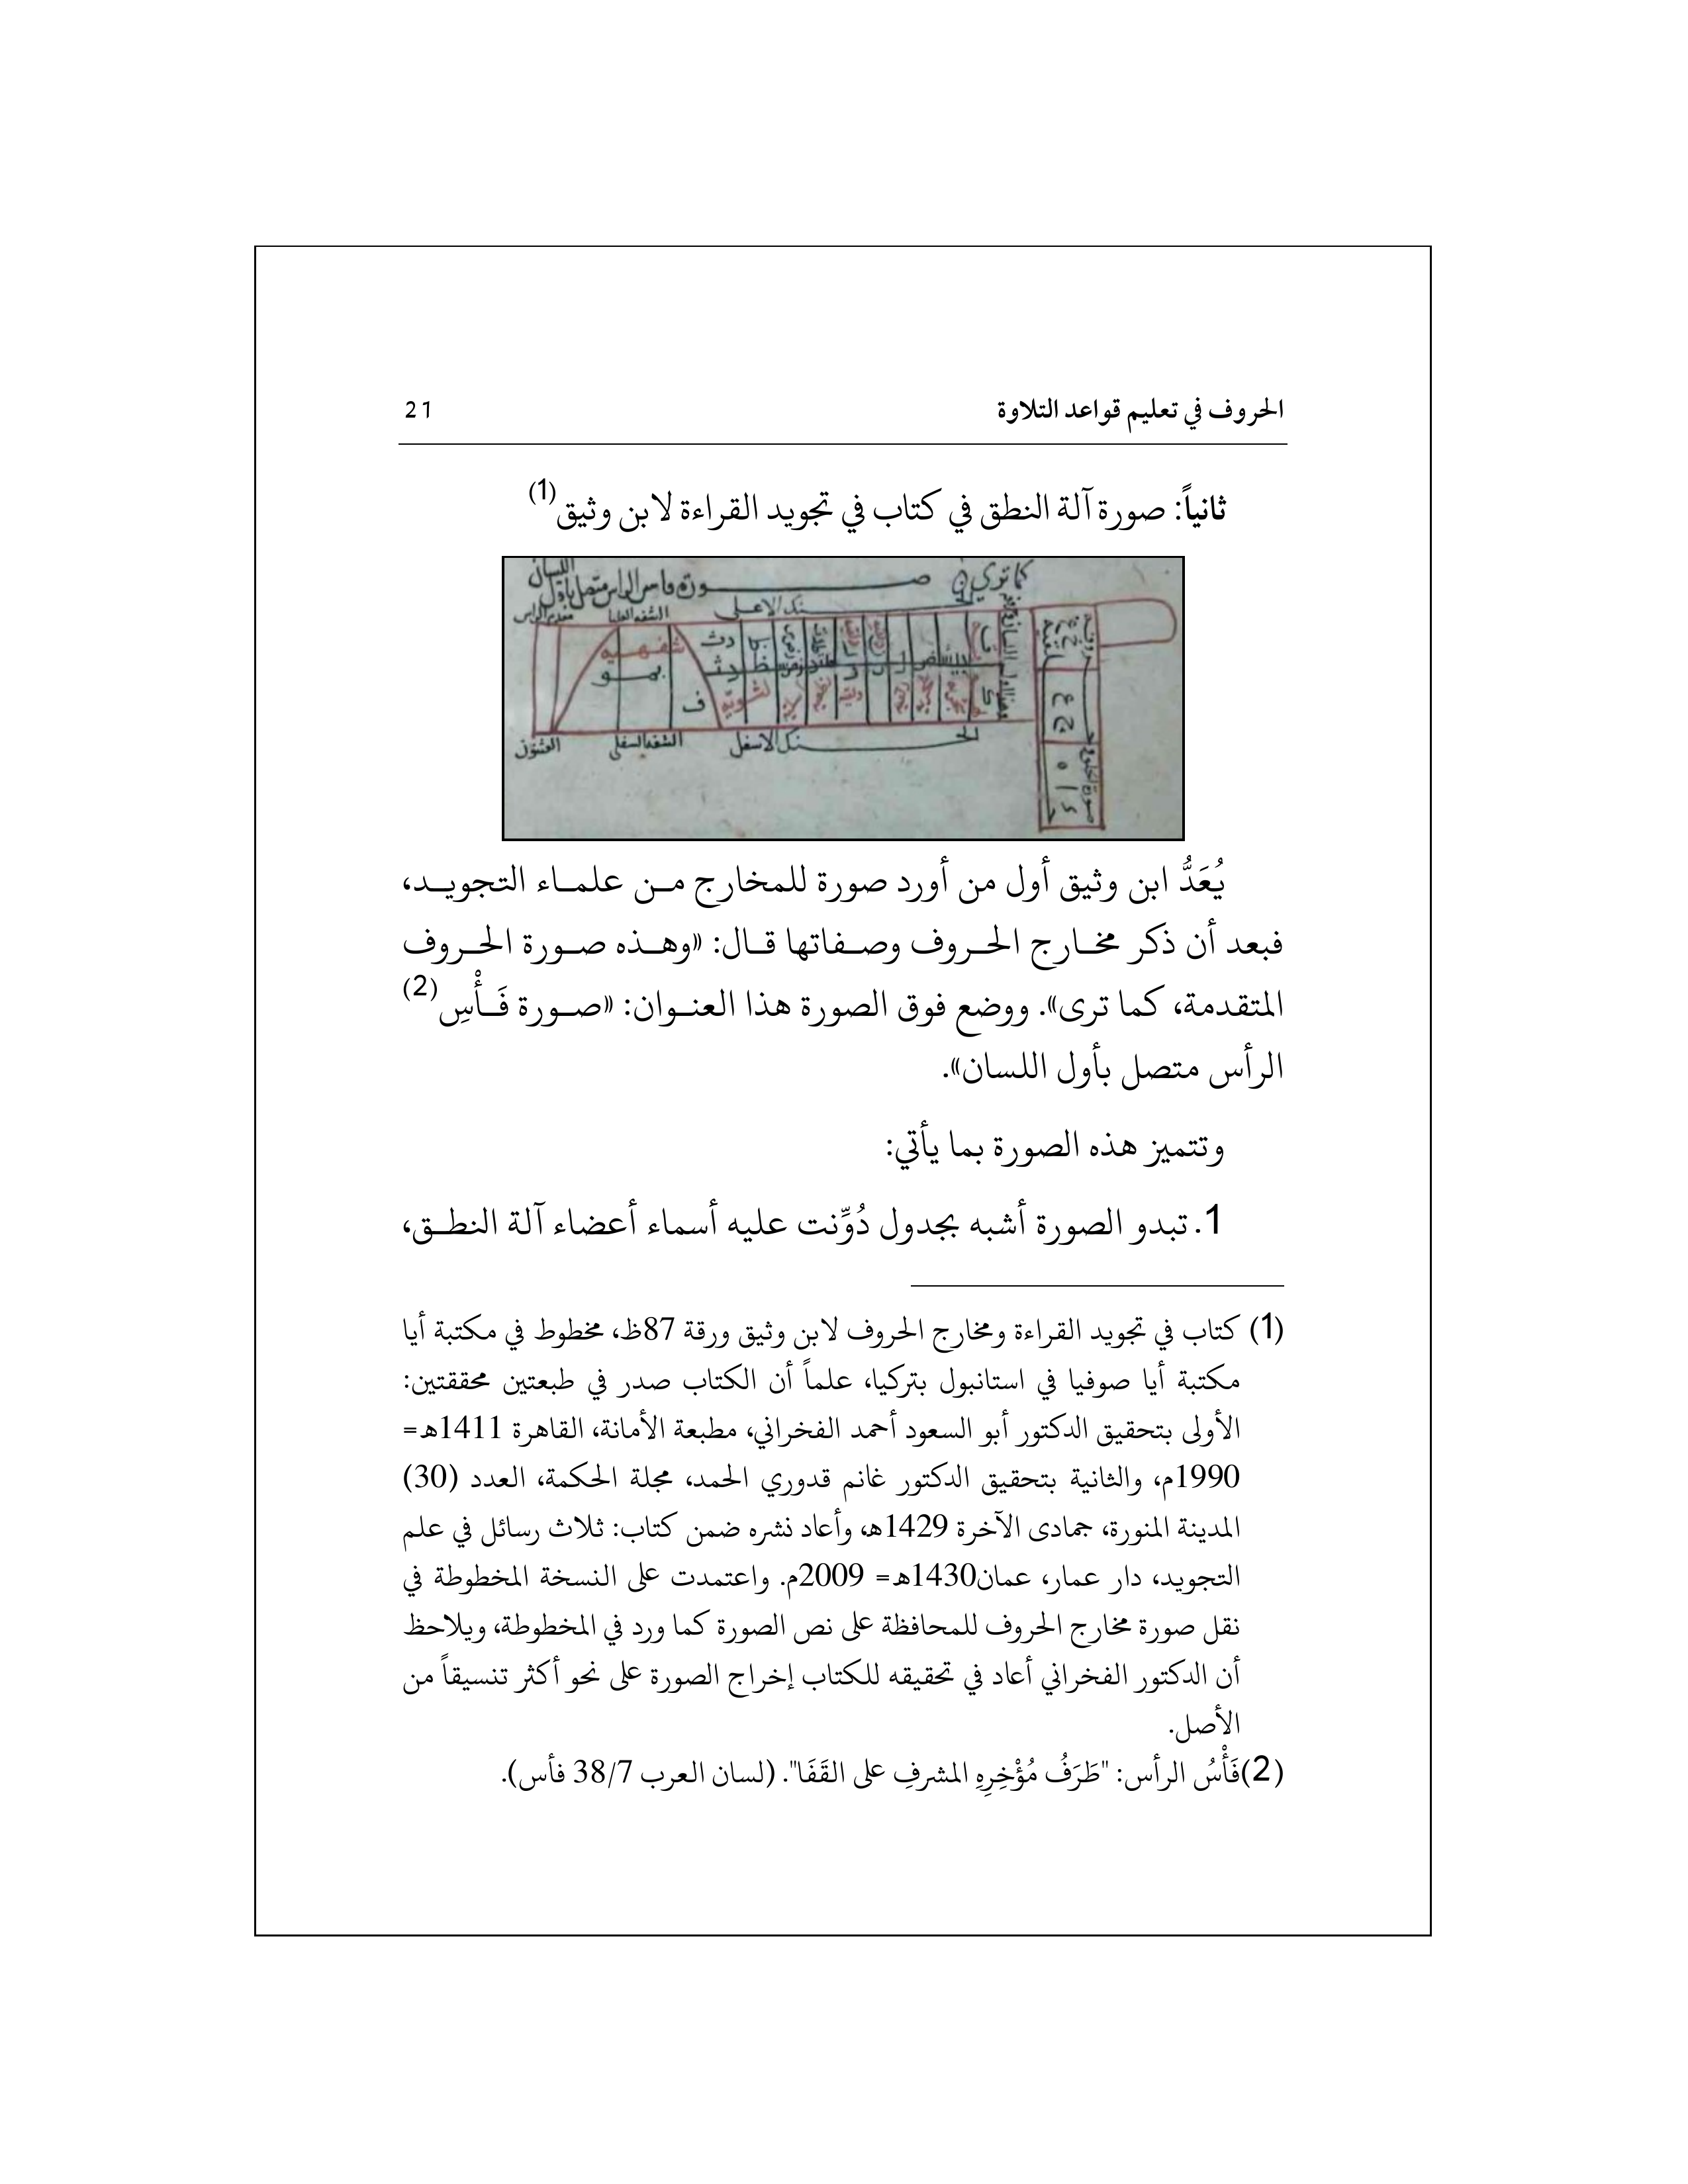 الحروف في تعليم قواعد التلاوة
21
ثانياً: صورة آلة النطق في كتاب في تجويد القراءة لابن وثيق(1)
كما ترى
صورة فاس الراس متصل باول اللسان
الحنك الاعلى
الشفه العليا
مقدم الراس
شفهية
بمو
ف
الحنك الاسفل
الشفه السفلى
يُعَدُّ ابن وثيق أول من أورد صورة للمخارج مـن علمـاء التجويـد،
فبعد أن ذكر مخـارج الحـروف وصـفاتها قـال: «وهـذه صـورة الحـروف
المتقدمة، كما ترى». ووضع فوق الصورة هذا العنـوان: «صـورة فَـأْسِ(2)
الرأس متصل بأول اللسان».
وتتميز هذه الصورة بما يأتي:
1. تبدو الصورة أشبه بجدول دُوِّنت عليه أسماء أعضاء آلة النطـق،
(1) كتاب في تجويد القراءة ومخارج الحروف لابن وثيق ورقة 87ظ، مخطوط في مكتبة أيا
مكتبة أيا صوفيا في استانبول بتركيا، علماً أن الكتاب صدر في طبعتين محققتين:
الأولى بتحقيق الدكتور أبو السعود أحمد الفخراني، مطبعة الأمانة، القاهرة 1411ه=
1990م، والثانية بتحقيق الدكتور غانم قدوري الحمد، مجلة الحكمة، العدد (30)
المدينة المنورة، جمادى الآخرة 1429ه، وأعاد نشره ضمن كتاب: ثلاث رسائل في علم
التجويد، دار عمار، عمان1430ه= 2009م. واعتمدت على النسخة المخطوطة في
نقل صورة مخارج الحروف للمحافظة على نص الصورة كما ورد في المخطوطة، ويلاحظ
أن الدكتور الفخراني أعاد في تحقيقه للكتاب إخراج الصورة على نحو أكثر تنسيقاً من
الأصل.
(2)فَأْسُ الرأس: "طَرَفُ مُؤْخِرِهِ المشرفِ على القَفَا". (لسان العرب 38/7 فأس).